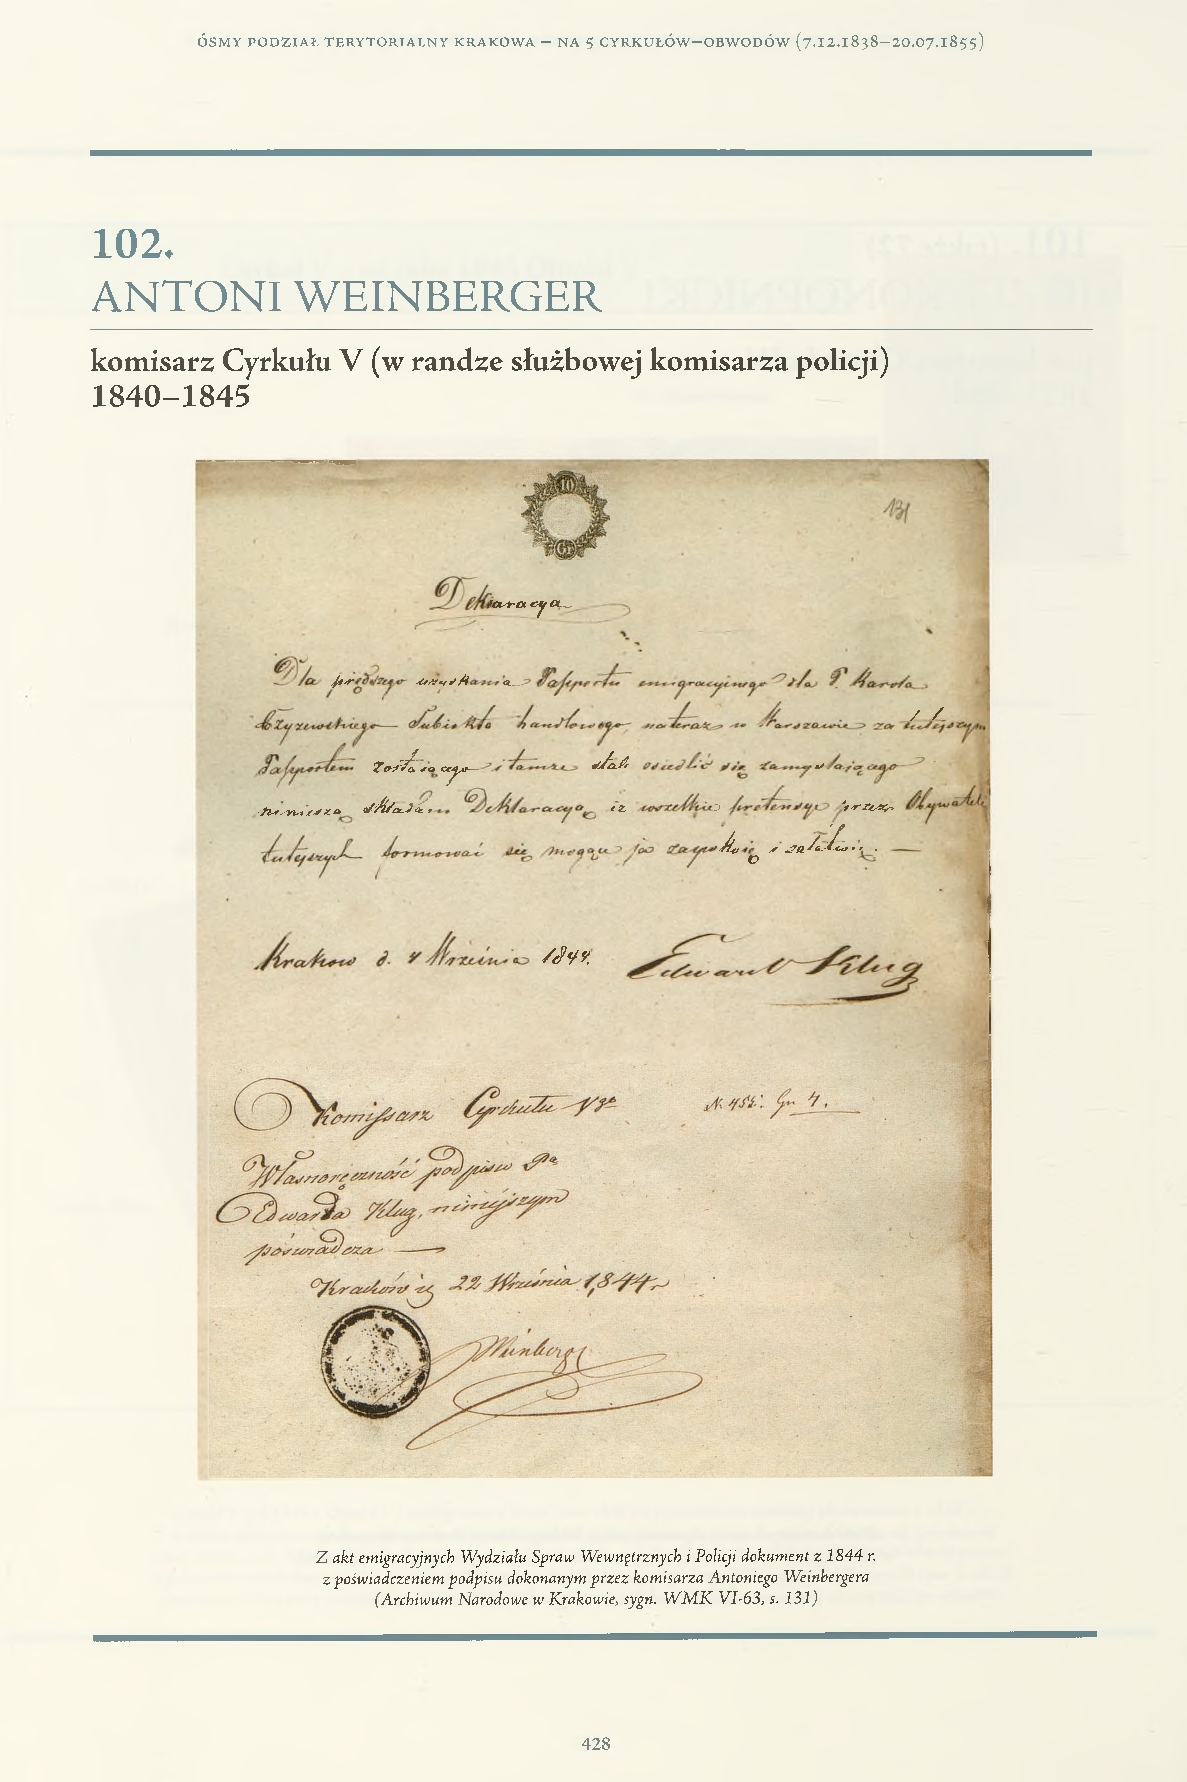 ÓSMY PODZIAŁ TERYTORIALNY KRAKOWA – NA 5 CYRKUŁÓW–OBWODÓW (7.12.1838–20.07.1855)
102.
ANTONI WEINBERGER
komisarz Cyrkułu V (w randze służbowej komisarza policji)
1840–1845
10
Gr
131
Deklaracya
Dla prędszego uzyskania Passportu emigracyinego dla P. Karola
Czyzewskiego Subiekta handlowego, na teraz w Warszawie za tutejszym
Passportem zostaiącego i tamze stale osiedlić się zamyslaiącego
ninieisza składam Deklaracyą iz wszelkie pretensye przez Obywateli
tutejszych formować się mogące ja zaspokoię i załatwię. —
Krakow d. 4 Września 1844.
Edward Klug
Kommissarz Cyrkułu Vgo
N. 454. Gr. 4.
Własnoręczność podpisu Pa
Edwarda Klug, niniejszym
poświadcza —
Kraków 22 Września 1844 r.
Weinberger
Z akt emigracyjnych Wydziału Spraw Wewnętrznych i Policji dokument z 1844 r.
z poświadczeniem podpisu dokonanym przez komisarza Antoniego Weinbergera
(Archiwum Narodowe w Krakowie, sygn. WMK VI-63, s. 131)
428